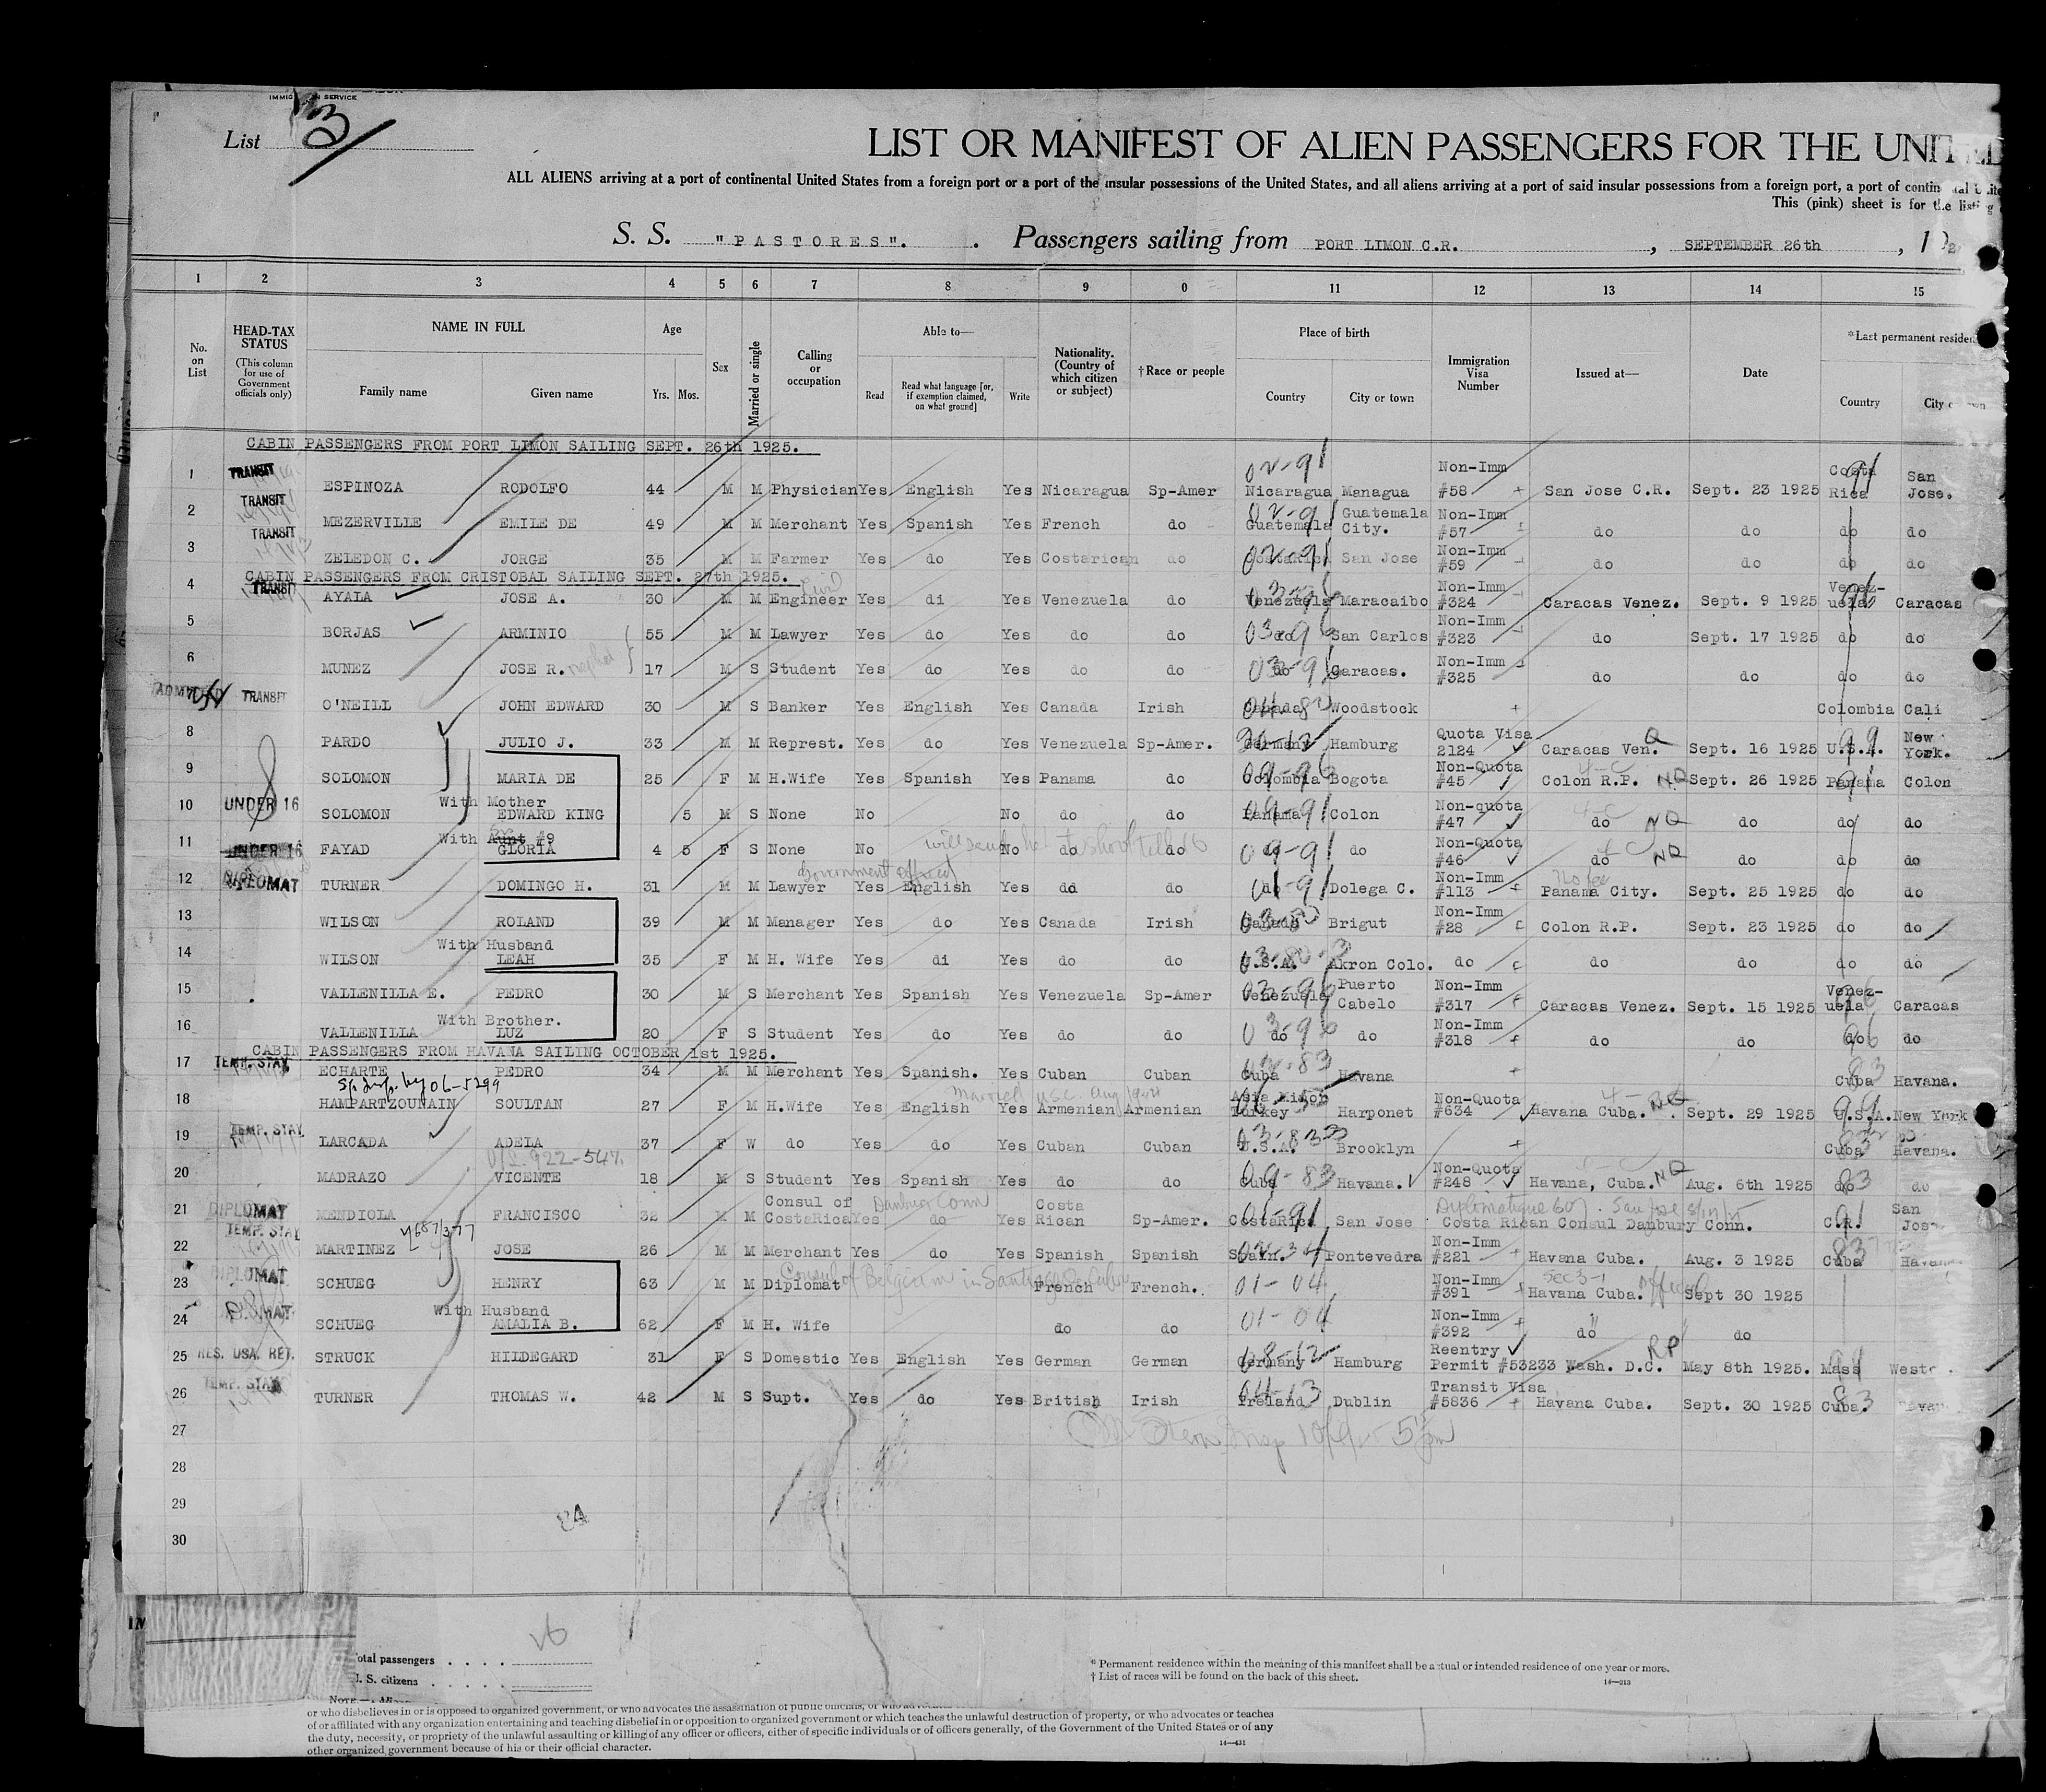 IMMIGRATION SERVICE
List 3
LIST OR MANIFEST OF ALIEN PASSENGERS FOR THE UNITED
ALL ALIENS arriving at a port of continental United States from a foreign port or a port of the insular possessions of the United States, and all aliens arriving at a port of said insular possessions from a foreign port, a port of continental United
This (pink) sheet is for the listing
S. S. "PASTORES". Passengers sailing from PORT LIMON C.R. , SEPTEMBER 26th , 192
1 2 3 4 5 6 7 8 9 0 11 12 13 14 15
No. on List HEAD-TAX STATUS (This column for use of Government officials only) NAME IN FULL Family name Given name Age Yrs. Mos. Sex Married or single Calling or occupation Able to— Read Read what language [or, if exemption claimed, on what ground] Write Nationality. (Country of which citizen or subject) †Race or people Place of birth Country City or town Immigration Visa Number Issued at— Date *Last permanent residence Country City or town
CABIN PASSENGERS FROM PORT LIMON SAILING SEPT. 26th 1925.
1 TRANSIT ESPINOZA RODOLFO 44 M M Physician Yes English Yes Nicaragua Sp-Amer 02-91 Nicaragua Managua Non-Imm #58 San Jose C.R. Sept. 23 1925 Costa Rica 91 San Jose.
2 TRANSIT MEZERVILLE EMILE DE 49 M M Merchant Yes Spanish Yes French do 02-91 Guatemala Guatemala City. Non-Imm #57 do do do do
3 TRANSIT ZELEDON C. JORGE 35 M M Farmer Yes do Yes Costarican do 02-91 CostaRica San Jose Non-Imm #59 do do do do
CABIN PASSENGERS FROM CRISTOBAL SAILING SEPT. 27th 1925.
4 TRANSIT AYALA JOSE A. 30 M M Civil Engineer Yes di Yes Venezuela do 03-96 Venezuela Maracaibo Non-Imm #324 Caracas Venez. Sept. 9 1925 Venez-uela 96 Caracas
5 BORJAS ARMINIO 55 M M Lawyer Yes do Yes do do 03-96 do San Carlos Non-Imm #323 do Sept. 17 1925 do do
6 MUNEZ JOSE R. nephew 17 M S Student Yes do Yes do do 03-96 do Caracas. Non-Imm #325 do do do do
ADMITTED TRANSIT O'NEILL JOHN EDWARD 30 M S Banker Yes English Yes Canada Irish 04-80 Canada Woodstock Colombia Cali
8 PARDO JULIO J. 33 M M Represt. Yes do Yes Venezuela Sp-Amer. Germany Hamburg Quota Visa 2124 Caracas Ven. Q Sept. 16 1925 U.S.A. 99 New York.
9 SOLOMON MARIA DE 25 F M H.Wife Yes Spanish Yes Panama do 09-96 Colombia Bogota Non-Quota #45 4-C Colon R.P. NQ Sept. 26 1925 Panama 91 Colon
With Mother
10 UNDER 16 SOLOMON EDWARD KING 5 M S None No No do do 09-91 Panama Colon Non-quota #47 4-C do NQ do do do
With Aunt #9
11 UNDER 16 FAYAD GLORIA 4 5 F S None No No do do 09-91 do do Non-Quota #46 4-C do NQ do do do
12 DIPLOMAT TURNER DOMINGO H. 31 M M Lawyer Government official Yes English Yes do do 01-91 do Dolega C. Non-Imm #113 No fee Panama City. Sept. 25 1925 do do
13 WILSON ROLAND 39 M M Manager Yes do Yes Canada Irish 03-80 Canada Brigut Non-Imm #28 Colon R.P. Sept. 23 1925 do do
With Husband
14 WILSON LEAH 35 F M H. Wife Yes di Yes do do 03-80-3 U.S.A. Akron Colo. do do do do do
15 VALLENILLA E. PEDRO 30 M S Merchant Yes Spanish Yes Venezuela Sp-Amer 03-96 Venezuela Puerto Cabelo Non-Imm #317 Caracas Venez. Sept. 15 1925 Venez-uela 96 Caracas
With Brother.
16 VALLENILLA LUZ 20 F S Student Yes do Yes do do 03-96 do do Non-Imm #318 do do do 96 do
CABIN PASSENGERS FROM HAVANA SAILING OCTOBER 1st 1925.
17 TEMP. STAY ECHARTE PEDRO 34 M M Merchant Yes Spanish. Yes Cuban Cuban 02-83 Cuba Havana Cuba 83 Havana.
Sp. Insp. by 06-5299
18 HAMPARTZOUNAIN SOULTAN 27 F M H.Wife Married U.S.C. Aug 1924 Yes English Yes Armenian Armenian Asia Minor Turkey Harponet Non-Quota #634 4- Havana Cuba. NQ Sept. 29 1925 U.S.A. 99 New York
19 TEMP. STAY LARCADA ADELA 37 F W do Yes do Yes Cuban Cuban 03-83 U.S.A. Brooklyn Cuba 83 do Havana.
V/L 922-547.
20 MADRAZO VICENTE 18 M S Student Yes Spanish Yes do do 09-83 Cuba Havana. Non-Quota #248 4-C Havana, Cuba. NQ Aug. 6th 1925 do 83 do
21 DIPLOMAT MENDIOLA FRANCISCO 32 M M Consul of CostaRica Danbury Conn Yes do Yes Costa Rican Sp-Amer. 01-91 CostaRica San Jose Diplomatique 607. San Jose 8/17/25 Costa Rican Consul Danbury Conn. C.R. 91 San Jos
22 TEMP. STAY MARTINEZ JOSE 26 M M Merchant Yes do Yes Spanish Spanish 02-34 Spain. Pontevedra Non-Imm #221 Havana Cuba. Aug. 3 1925 Cuba 83 Havana
23 DIPLOMAT SCHUEG HENRY 63 M M Diplomat Consul of Belgium in Santiago de Cuba French French. 01-04 Non-Imm #391 Sec 3-1 Havana Cuba. Official Sept 30 1925
With Husband
24 SCHUEG AMALIA B. 62 F M H. Wife do do 01-04 Non-Imm #392 do do
25 RES. USA. RET. STRUCK HILDEGARD 31 F S Domestic Yes English Yes German German 08-12 Germany Hamburg Reentry Permit #53233 Wash. D.C. RP May 8th 1925. Mass 99
26 TEMP. STAY TURNER THOMAS W. 42 M S Supt. Yes do Yes British Irish 04-13 Ireland Dublin Transit Visa #5836 Havana Cuba. Sept. 30 1925 Cuba. 83
27
28
29
30
26
Total passengers . . . .
U. S. citizens . . . . .
* Permanent residence within the meaning of this manifest shall be actual or intended residence of one year or more.
† List of races will be found on the back of this sheet.
14—213
or who disbelieves in or is opposed to organized government, or who advocates the assassination of public officials, or who
of or affiliated with any organization entertaining and teaching disbelief in or opposition to organized government or which teaches the unlawful destruction of property, or who advocates or teaches
the duty, necessity, or propriety of the unlawful assaulting or killing of any officer or officers, either of specific individuals or of officers generally, of the Government of the United States or of any
other organized government because of his or their official character.
14—431